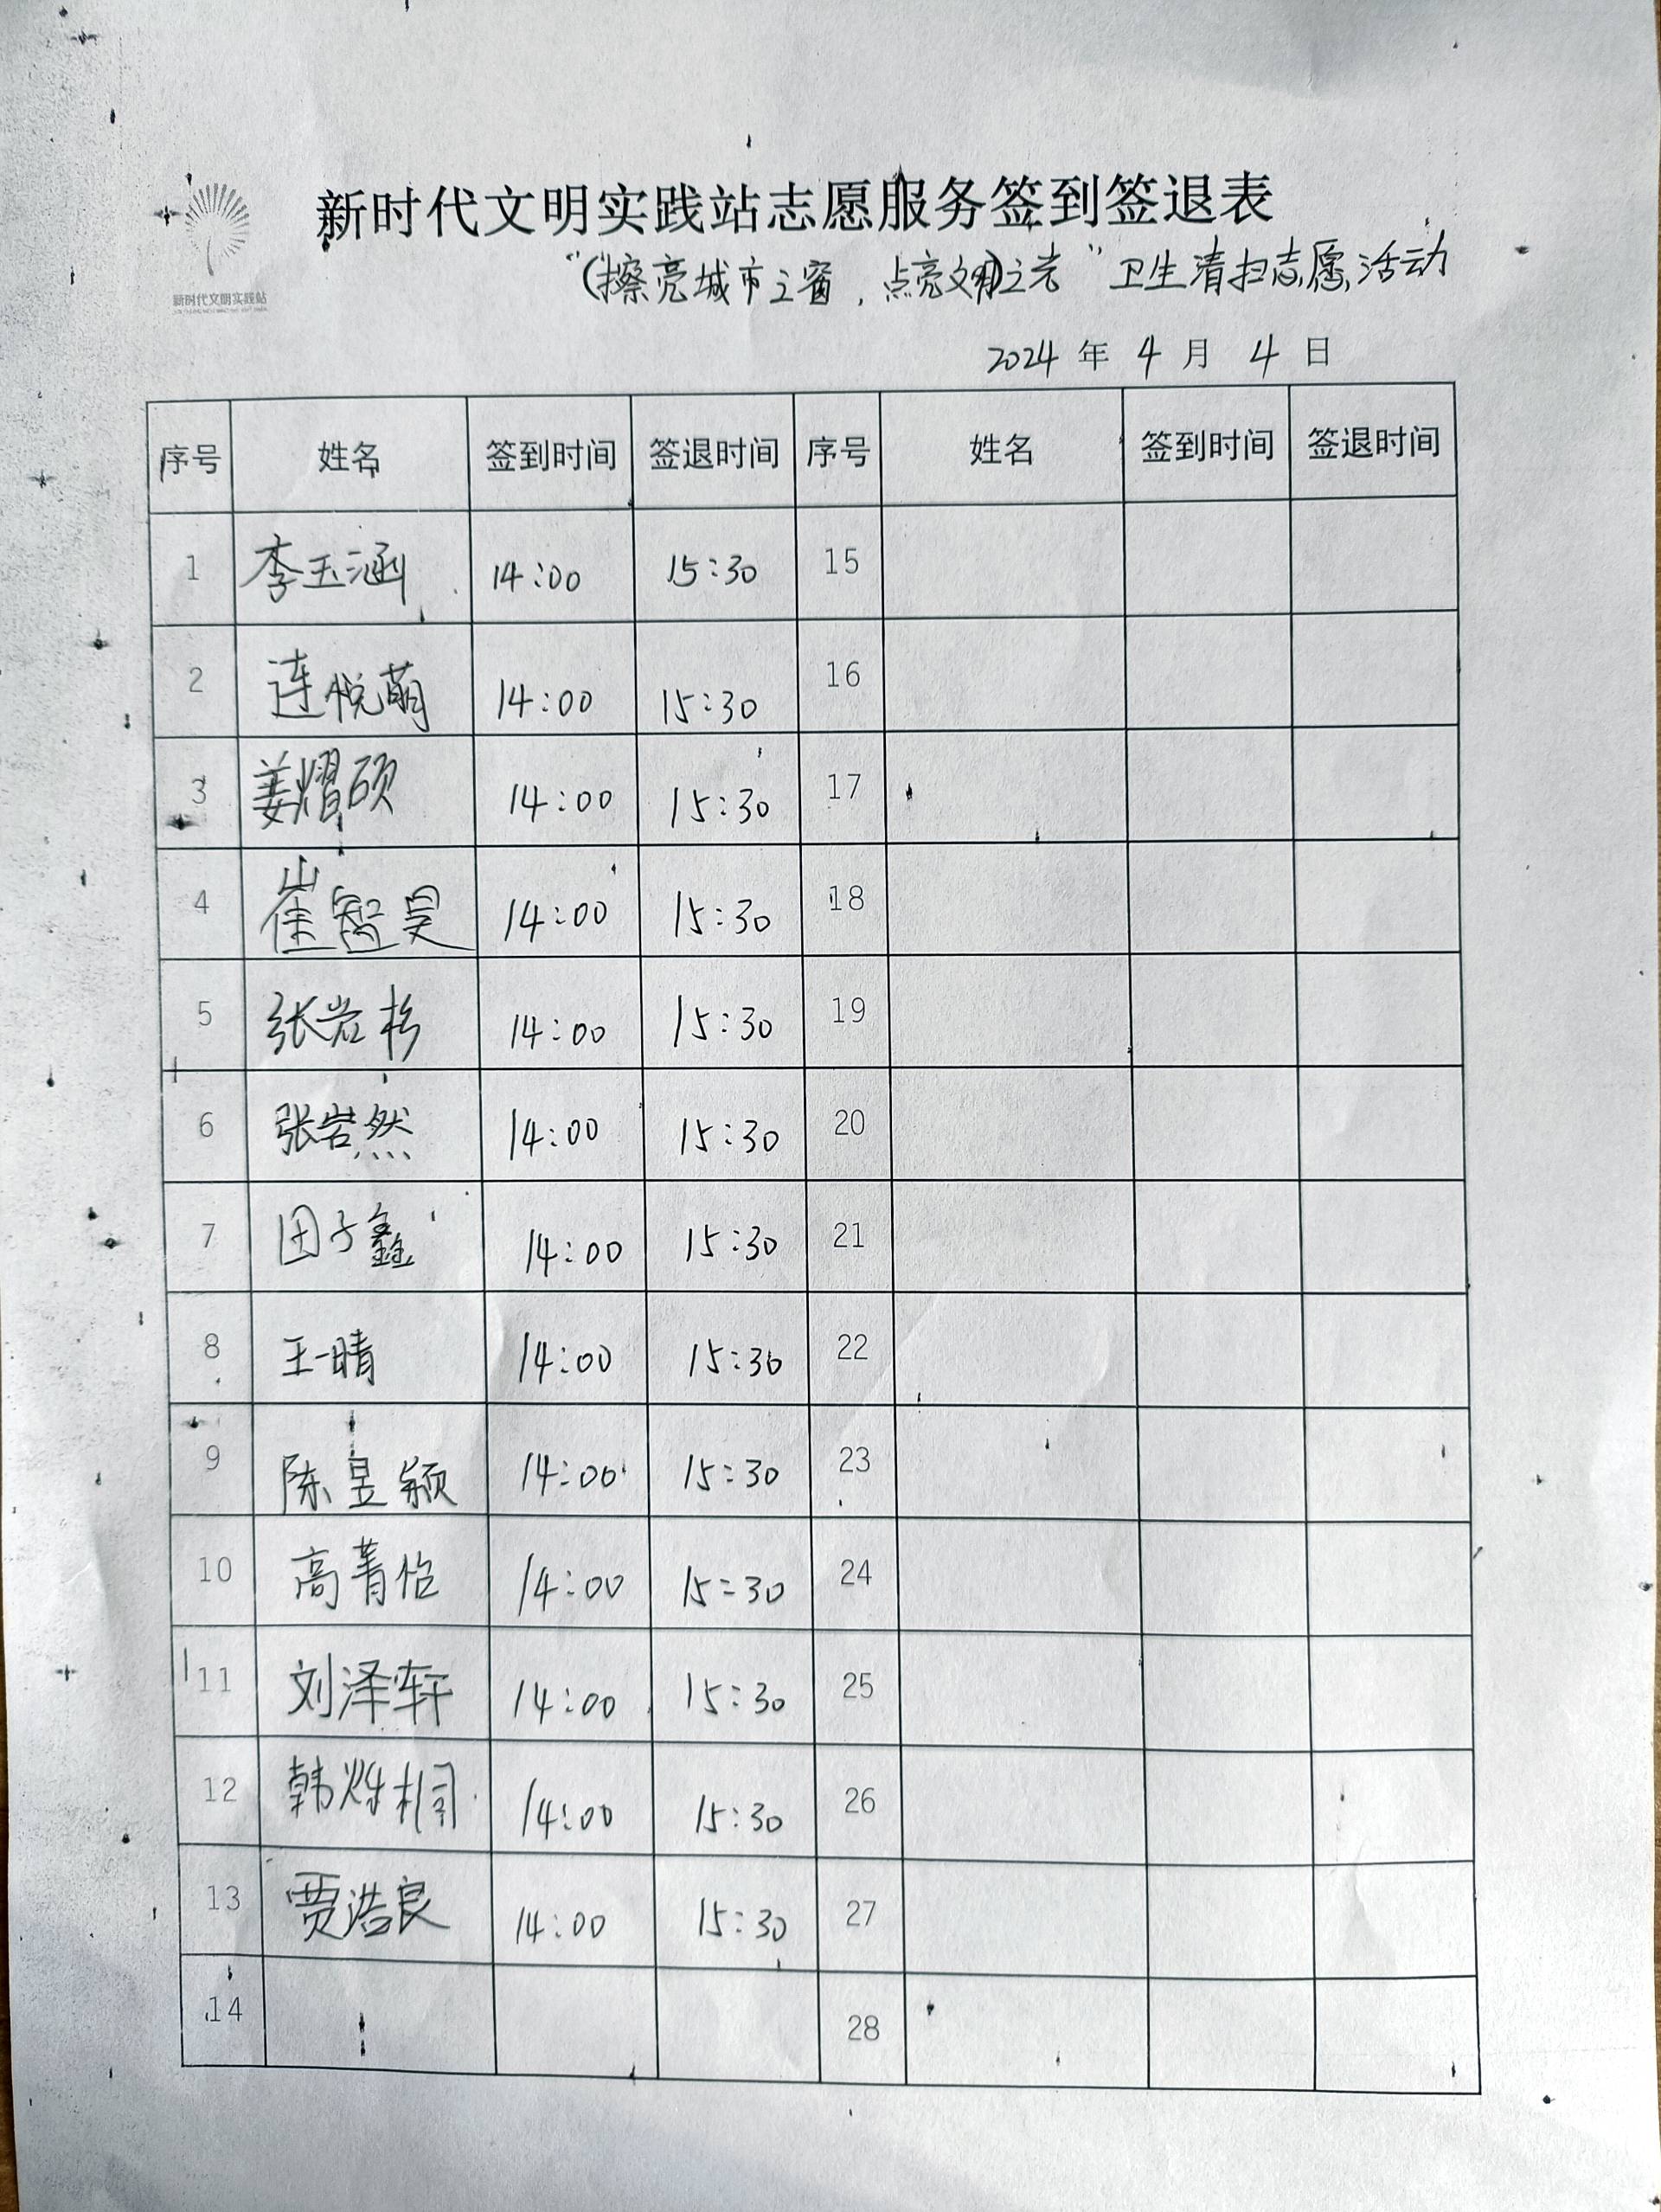 新时代文明实践站志愿服务签到签退表
“(擦亮城市之窗，点亮文明)之光”卫生清扫志愿活动
新时代文明实践站
2024 年 4 月 4 日
序号 姓名 签到时间 签退时间 序号 姓名 签到时间 签退时间
1 李玉涵 14:00 15:30 15
2 连悦萌 14:00 15:30 16
3 姜熠硕 14:00 15:30 17
4 崔智昊 14:00 15:30 18
5 张岩杉 14:00 15:30 19
6 张岩然 14:00 15:30 20
7 田子鑫 14:00 15:30 21
8 王一晴 14:00 15:30 22
9 陈昱颖 14:00 15:30 23
10 高菁怡 14:00 15:30 24
11 刘泽轩 14:00 15:30 25
12 韩烁桐 14:00 15:30 26
13 贾浩良 14:00 15:30 27
14 28